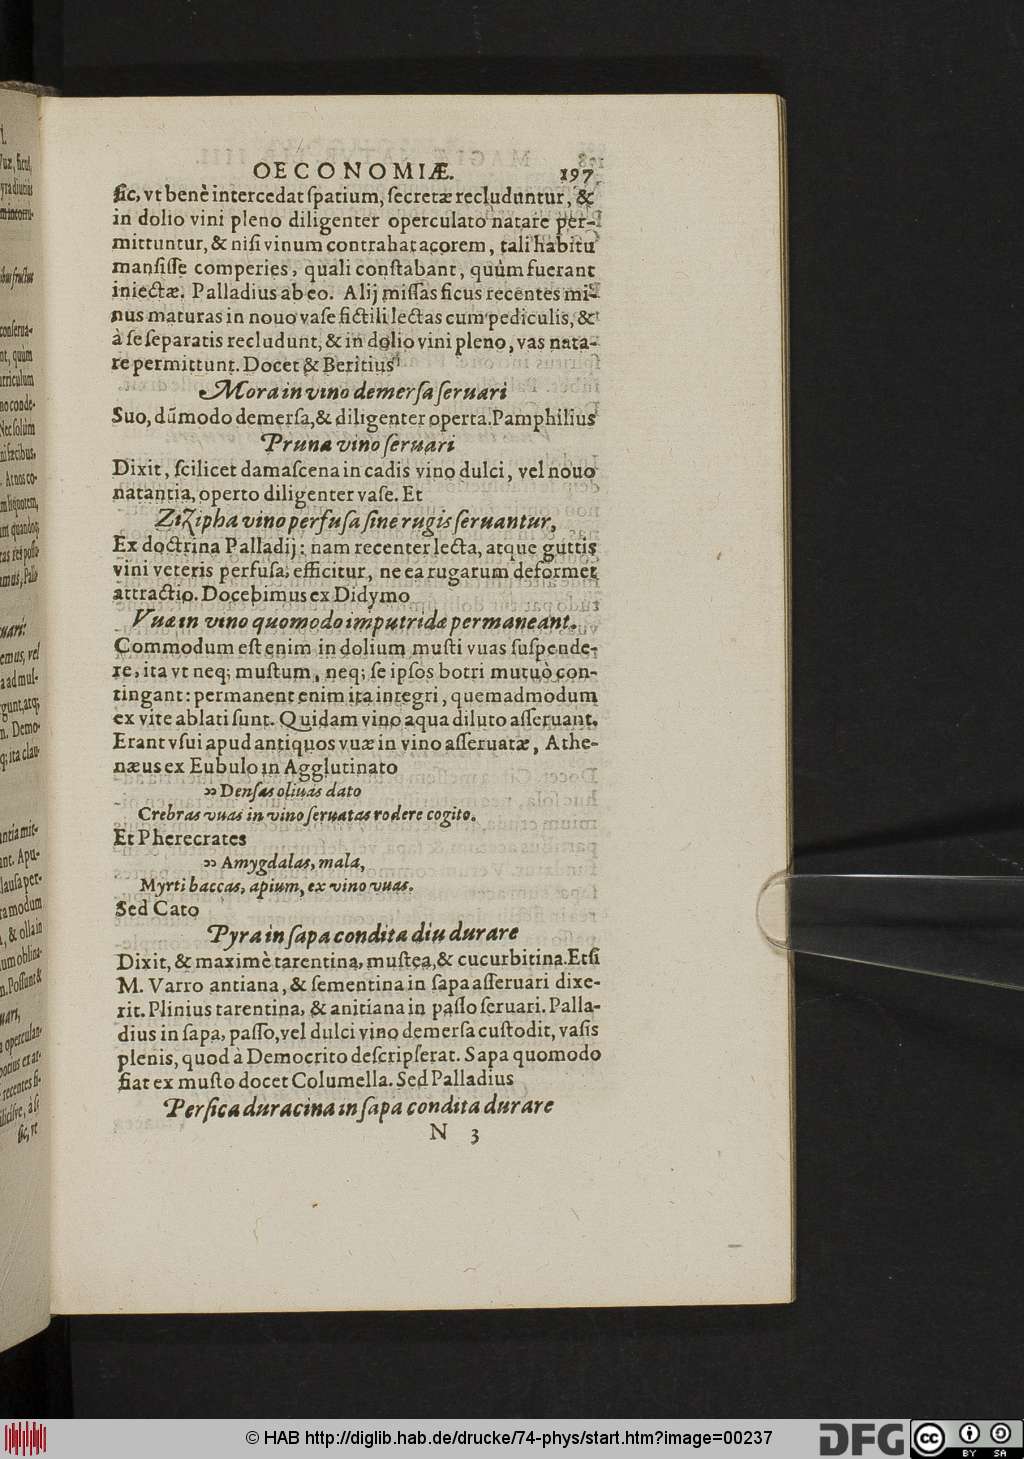 OECONOMIÆ. 197
sic, vt benè intercedat spatium, secretæ recluduntur, &
in dolio vini pleno diligenter operculato natare per-
mittuntur, & nisi vinum contrahat acorem, tali habitu
mansisse comperies, quali constabant, quùm fuerant
iniectæ. Palladius ab eo. Alij missas ficus recentes mi-
nus maturas in nouo vase fictili lectas cum pediculis, &
à se separatis recludunt, & in dolio vini pleno, vas nata-
re permittunt. Docet & Beritius
Mora in vino demersa seruari
Suo, dũmodo demersa, & diligenter operta. Pamphilius
Pruna vino seruari
Dixit, scilicet damascena in cadis vino dulci, vel nouo
natantia, operto diligenter vase. Et
Zizipha vino perfusa sine rugis seruantur,
Ex doctrina Palladij: nam recenter lecta, atque guttis
vini veteris perfusa, efficitur, ne ea rugarum deformet
attractio. Docebimus ex Didymo
Vuæ in vino quomodo imputridæ permaneant.
Commodum est enim in dolium musti vuas suspende-
re, ita vt neq; mustum, neq; se ipsos botri mutuò con-
tingant: permanent enim ita integri, quemadmodum
ex vite ablati sunt. Quidam vino aqua diluto asseruant.
Erant vsui apud antiquos vuæ in vino asseruatæ, Athe-
næus ex Eubulo in Agglutinato
„ Densas oliuas dato
Crebras vuas in vino seruatas rodere cogito.
Et Pherecrates
„ Amygdalas, mala,
Myrti baccas, apium, ex vino vuas.
Sed Cato
Pyra in sapa condita diu durare
Dixit, & maximè tarentina, mustea, & cucurbitina. Etsi
M. Varro antiana, & sementina in sapa asseruari dixe-
rit. Plinius tarentina, & anitiana in passo seruari. Palla-
dius in sapa, passo, vel dulci vino demersa custodit, vasis
plenis, quod à Democrito descripserat. Sapa quomodo
fiat ex musto docet Columella. Sed Palladius
Persica duracina in sapa condita durare
N 3
© HAB http://diglib.hab.de/drucke/74-phys/start.htm?image=00237
DFG
cc BY SA